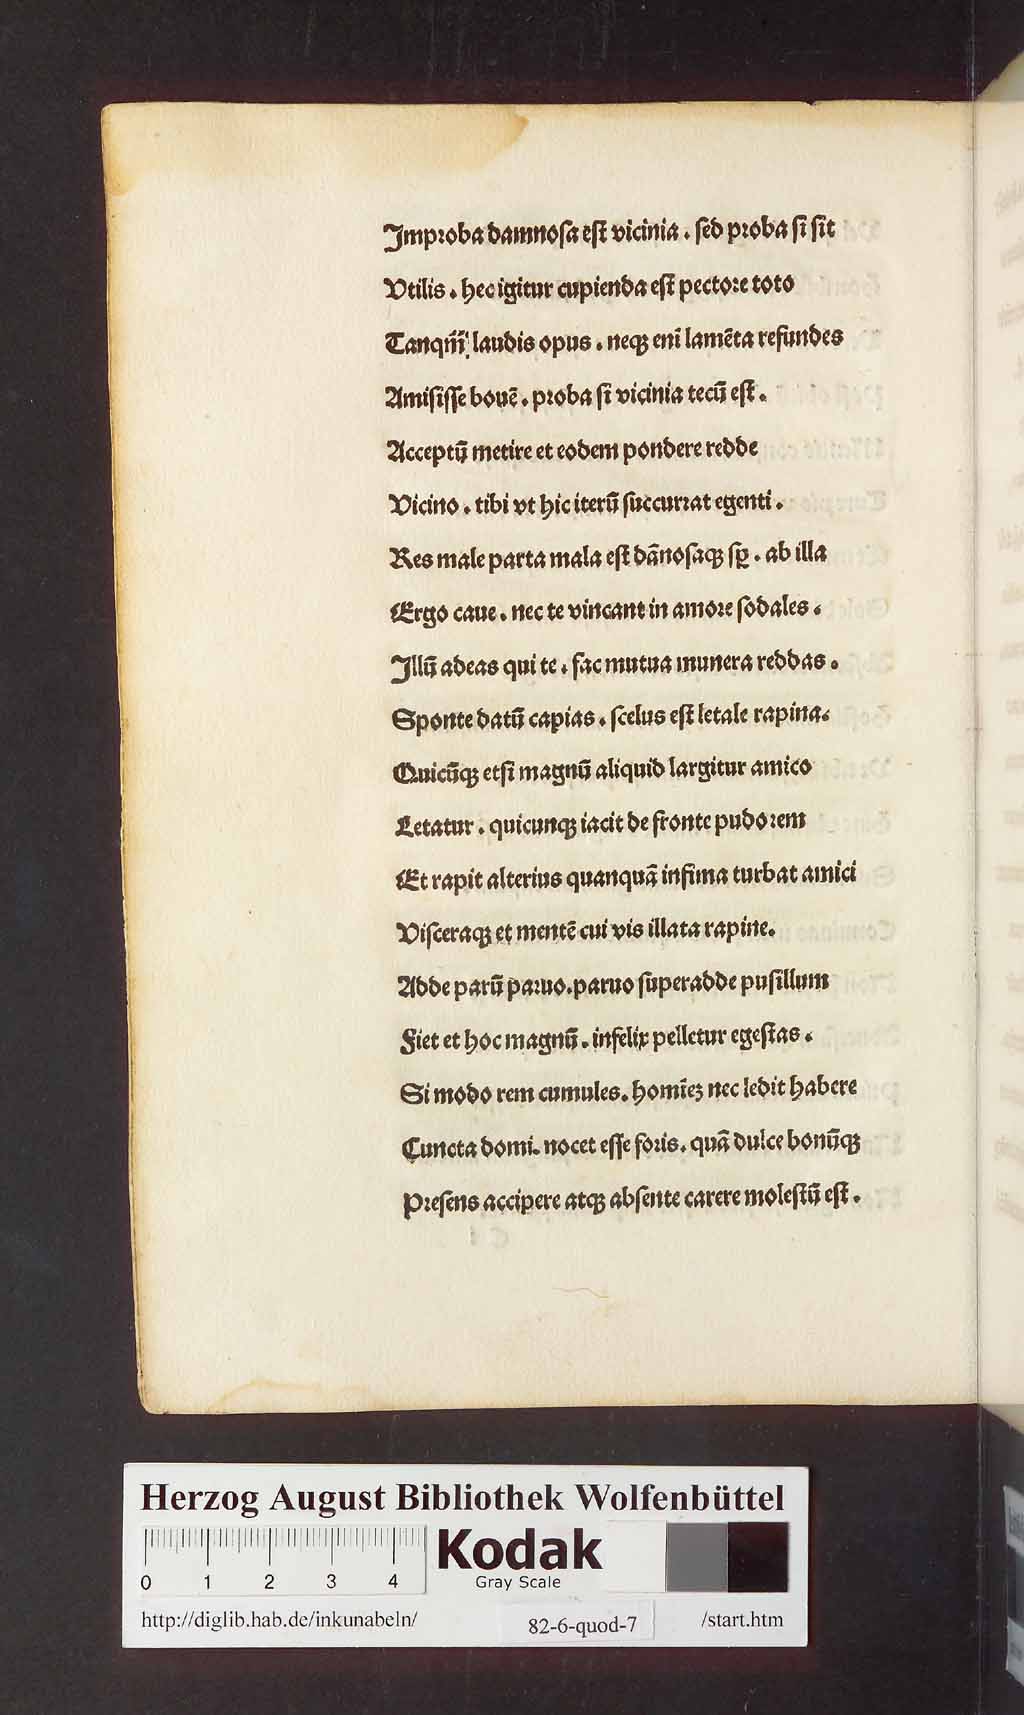 Improba damnosa est vicinia . sed proba si sit
Vtilis . hec igitur cupienda est pectore toto
laudis opus . neqꝫ eni lamēta refundes
Amisisse bouē . proba si vicinia tecū est .
Acceptū metire et eodem pondere redde
Vicino . tibi vt hic iterū succurrat egenti .
Res male parta mala est dānosaqꝫ sꝑ . ab illa
Ergo caue . nec te vincant in amore sodales .
Illū adeas qui te . fac mutua munera reddas .
Sponte datū capias . scelus est letale rapina .
Quicūqꝫ etsi magnū aliquid largitur amico
Letatur . quicunqꝫ iacit de fronte pudorem
Et rapit alterius quanquā infima turbat amici
Visceraqꝫ et mentē cui vis illata rapine .
Adde parū paruo . paruo superadde pusillum
Fiet et hoc magnū . infelix pelletur egestas .
Si modo rem cumules . homīeꝫ nec ledit habere
Cuncta domi . nocet esse foris . quā dulce bonūqꝫ
Presens accipere atqꝫ absente carere molestū est .
Herzog August Bibliothek Wolfenbüttel
0 1 2 3 4
Kodak
Gray Scale
http://diglib.hab.de/inkunabeln/ 82-6-quod-7 /start.htm